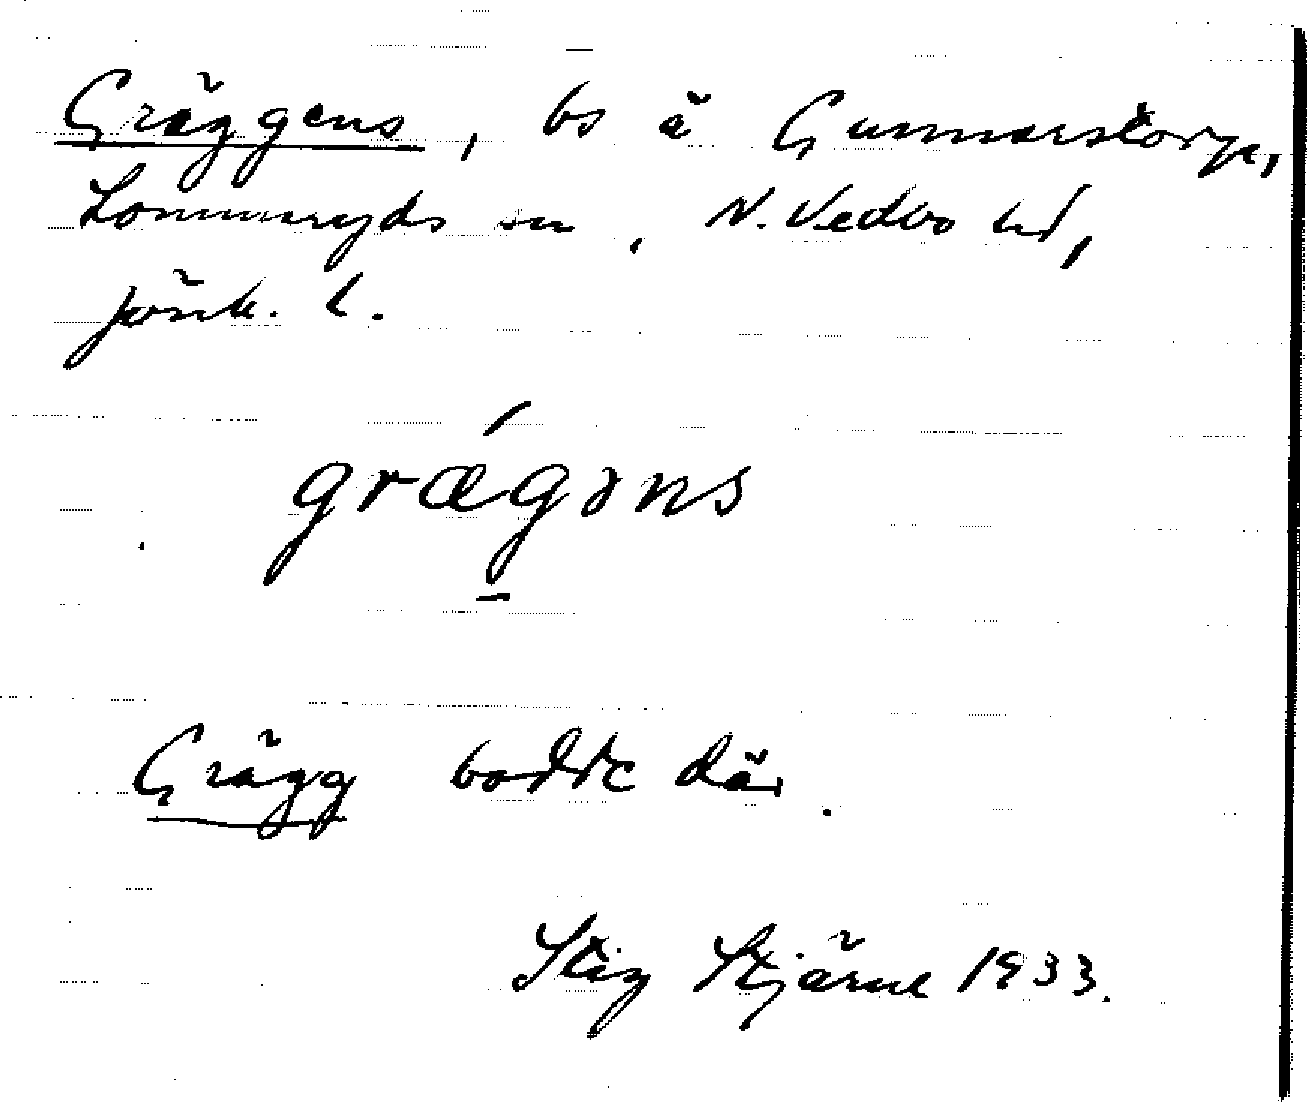 Gräggens, bs å Gunnarstorp,
Lommaryds sn, N. Vedbo hd,
Jönk. l.
grǽg̱əns
Grägg bodde där.
Stig Stjärne 1933.